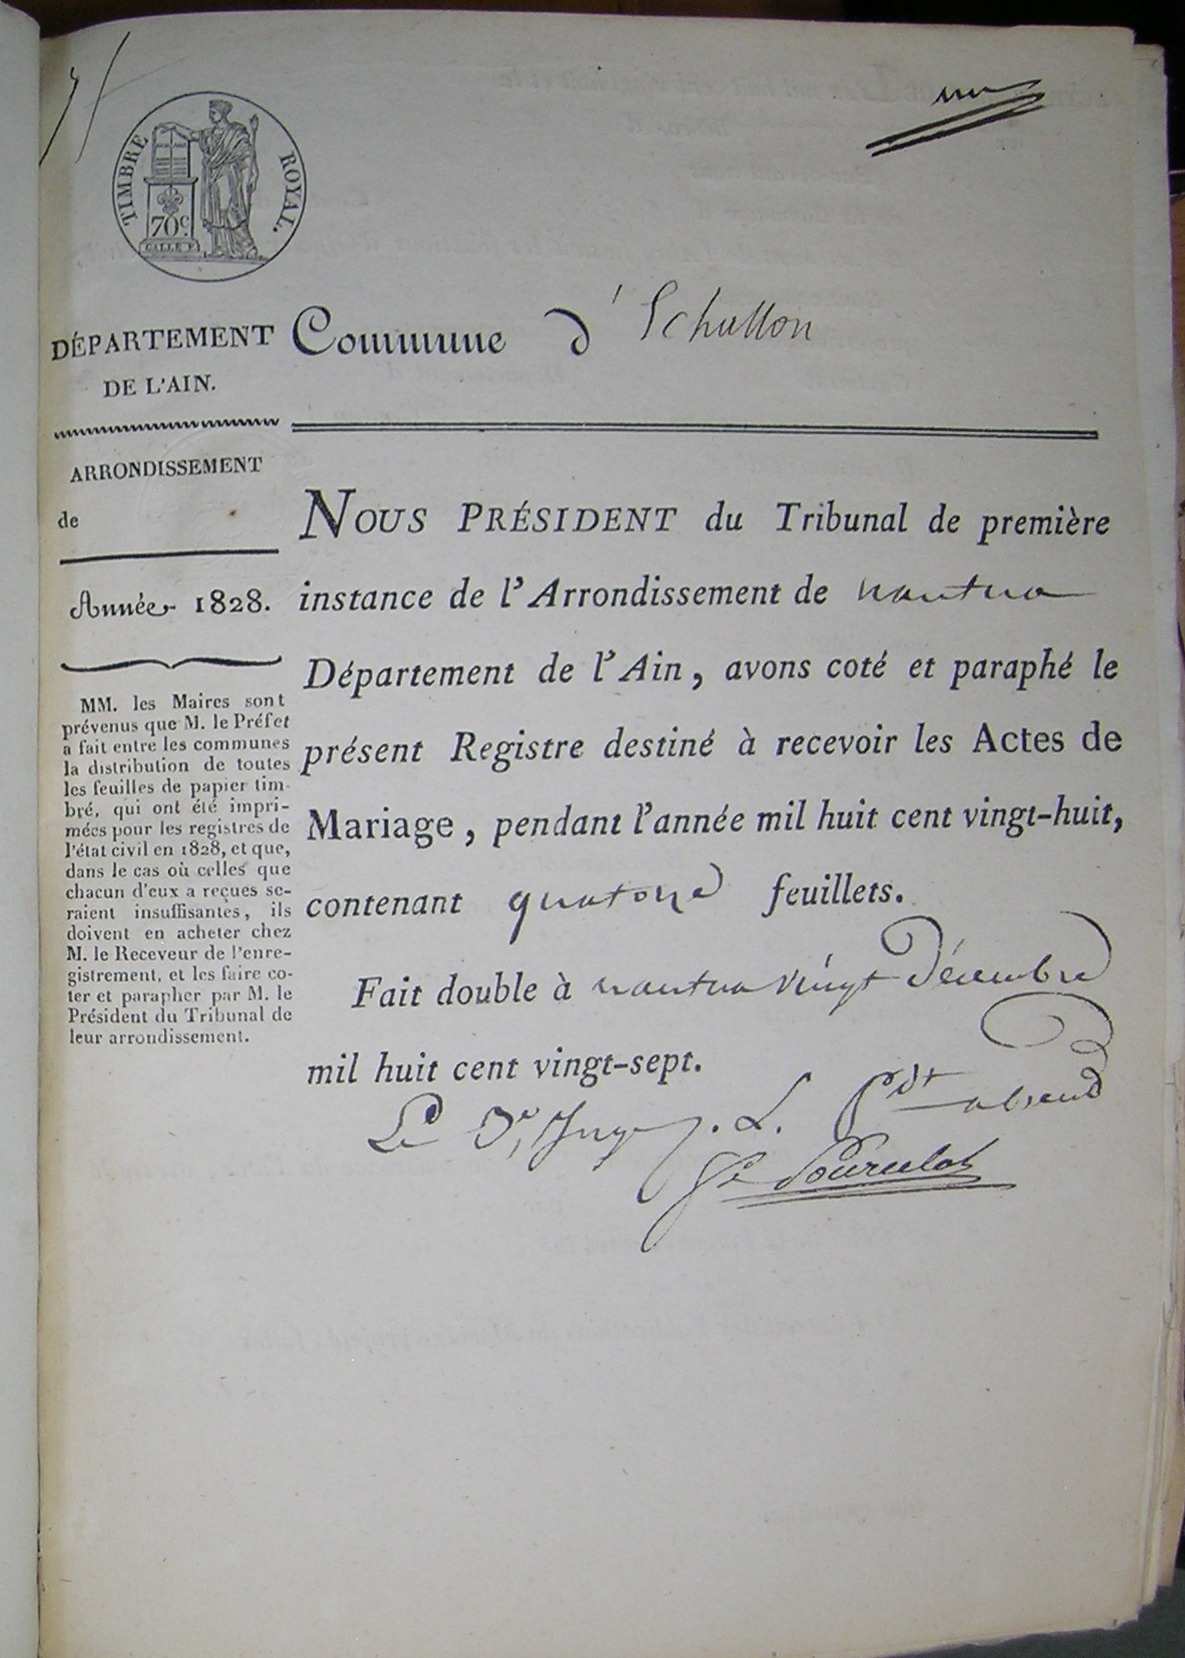 un
TIMBRE ROYAL.
70c.
DÉPARTEMENT
DE L'AIN.
Commune d'Echallon
ARRONDISSEMENT
de
Année 1828.
MM. les Maires sont
prévenus que M. le Préfet
a fait entre les communes
la distribution de toutes
les feuilles de papier tim-
bré, qui ont été impri-
mées pour les registres de
l'état civil en 1828, et que,
dans le cas où celles que
chacun d'eux a reçues se-
raient insuffisantes, ils
doivent en acheter chez
M. le Receveur de l'enre-
gistrement, et les faire co-
ter et parapher par M. le
Président du Tribunal de
leur arrondissement.
NOUS PRÉSIDENT du Tribunal de première
instance de l'Arrondissement de nantua
Département de l'Ain, avons coté et paraphé le
présent Registre destiné à recevoir les Actes de
Mariage, pendant l'année mil huit cent vingt-huit,
contenant quatorze feuillets.
Fait double à nantua vingt Décembre
mil huit cent vingt-sept.
Le Juge p. L. Pdt absent